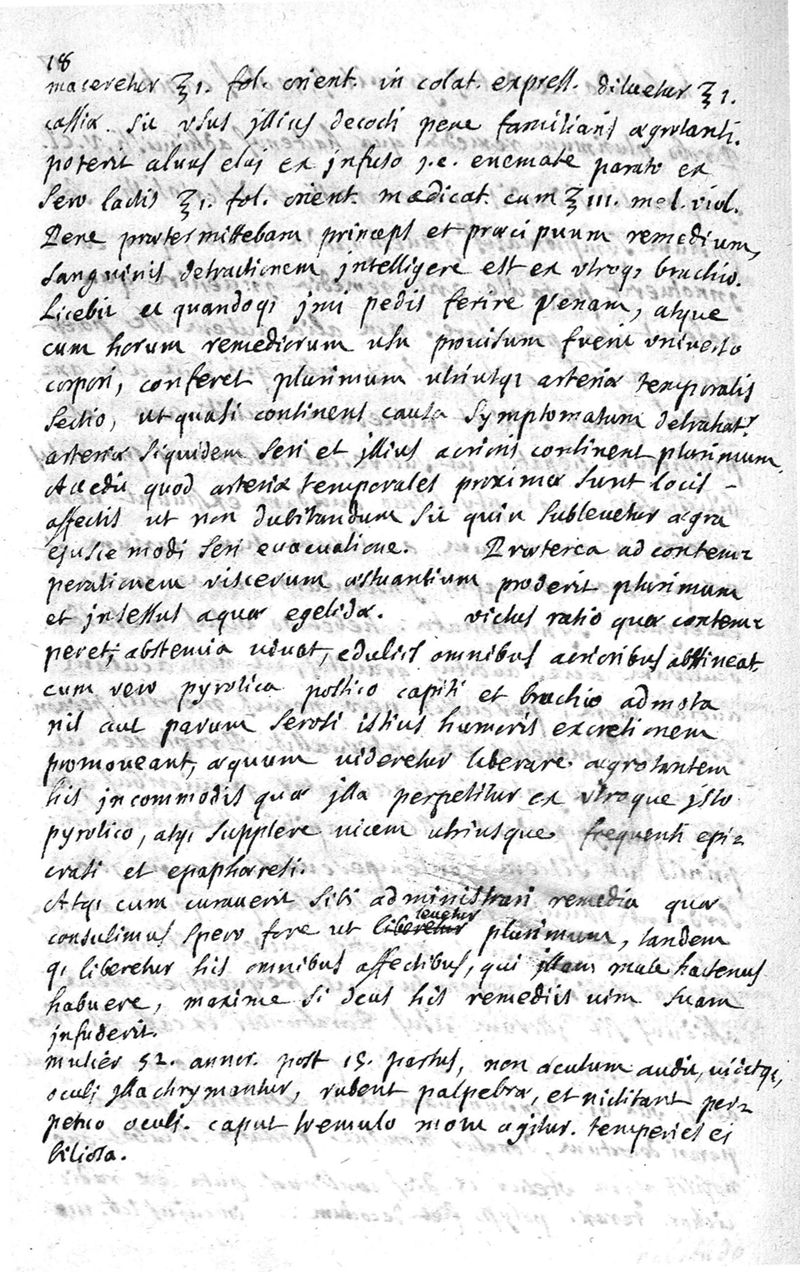 18
maceretur ʒ 1. fol. orient. in colat. express. diluetur ʒ 1.
cassiæ. sit vsus jllius decocti pene familiaris ægrotanti.
poterit aluus ejus ex jnfuso j.e. enemate parato ex
sero lactis ʒ 1. fol. orient. mædicat. cum ʒ III. mel. viol.
Pene prætermittebam princeps et præcipuum remedium,
sanguinis detractionem jntelligere est ex vtroqз brachio.
Licebit et quandoqз jmi pedis ferire venam, atque
cum horum remediorum usu prouisum fuerit vniuerso
corpori, conferet plurimum utriusqз arteriæ temporalis
sectio, ut quasi continens causa symptomatum detrahatr
arteriæ siquidem seri et jllius acrioris continent plurimum.
Accedit quod arteriæ temporales proximæ sunt locis
affectis ut non dubitandum sit quin subleuetur ægra
ejuscemodi seri euacuatione. Præterea ad contem=
perationem viscerum æstuantium proderit plurimum
et jnsessus aquæ egelidæ. victus ratio quæ contem=
peret, abstemia uiuat, eduliis omnibus acrioribus abstineat,
cum vero pyrotica postico capiti et brachio admota
nil aut parum serosi istius humoris excretionem
promoueant, æquum uideretur liberare ægrotantem
his jncommodis quæ jlla perpetitur ex vtroque jsto
pyrotico, atqз supplere uicem utriusque frequenti epi=
crasi et epaphæresi.
Atqз cum curauerit sibi administrari remedia quæ
consulimus spero fore ut liberetur leuetur plurimum, tandem
qз liberetur his omnibus affectibus, qui jllam male hactenus
habuere, maxime si deus his remediis uim suam
jnfuderit.
mulier 52. annor. post 15. partus, non acutum audit, uidetqз,
oculi jllachrymantur, rubent palpebræ, et nictitant per=
petuo oculi. caput tremulo motu agitur. temperies ei
biliosa.